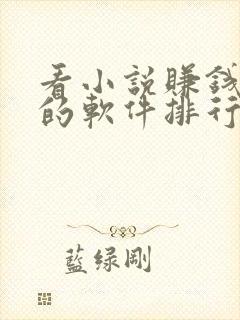 看小説賺錢
的軟件排行
藍绿剛